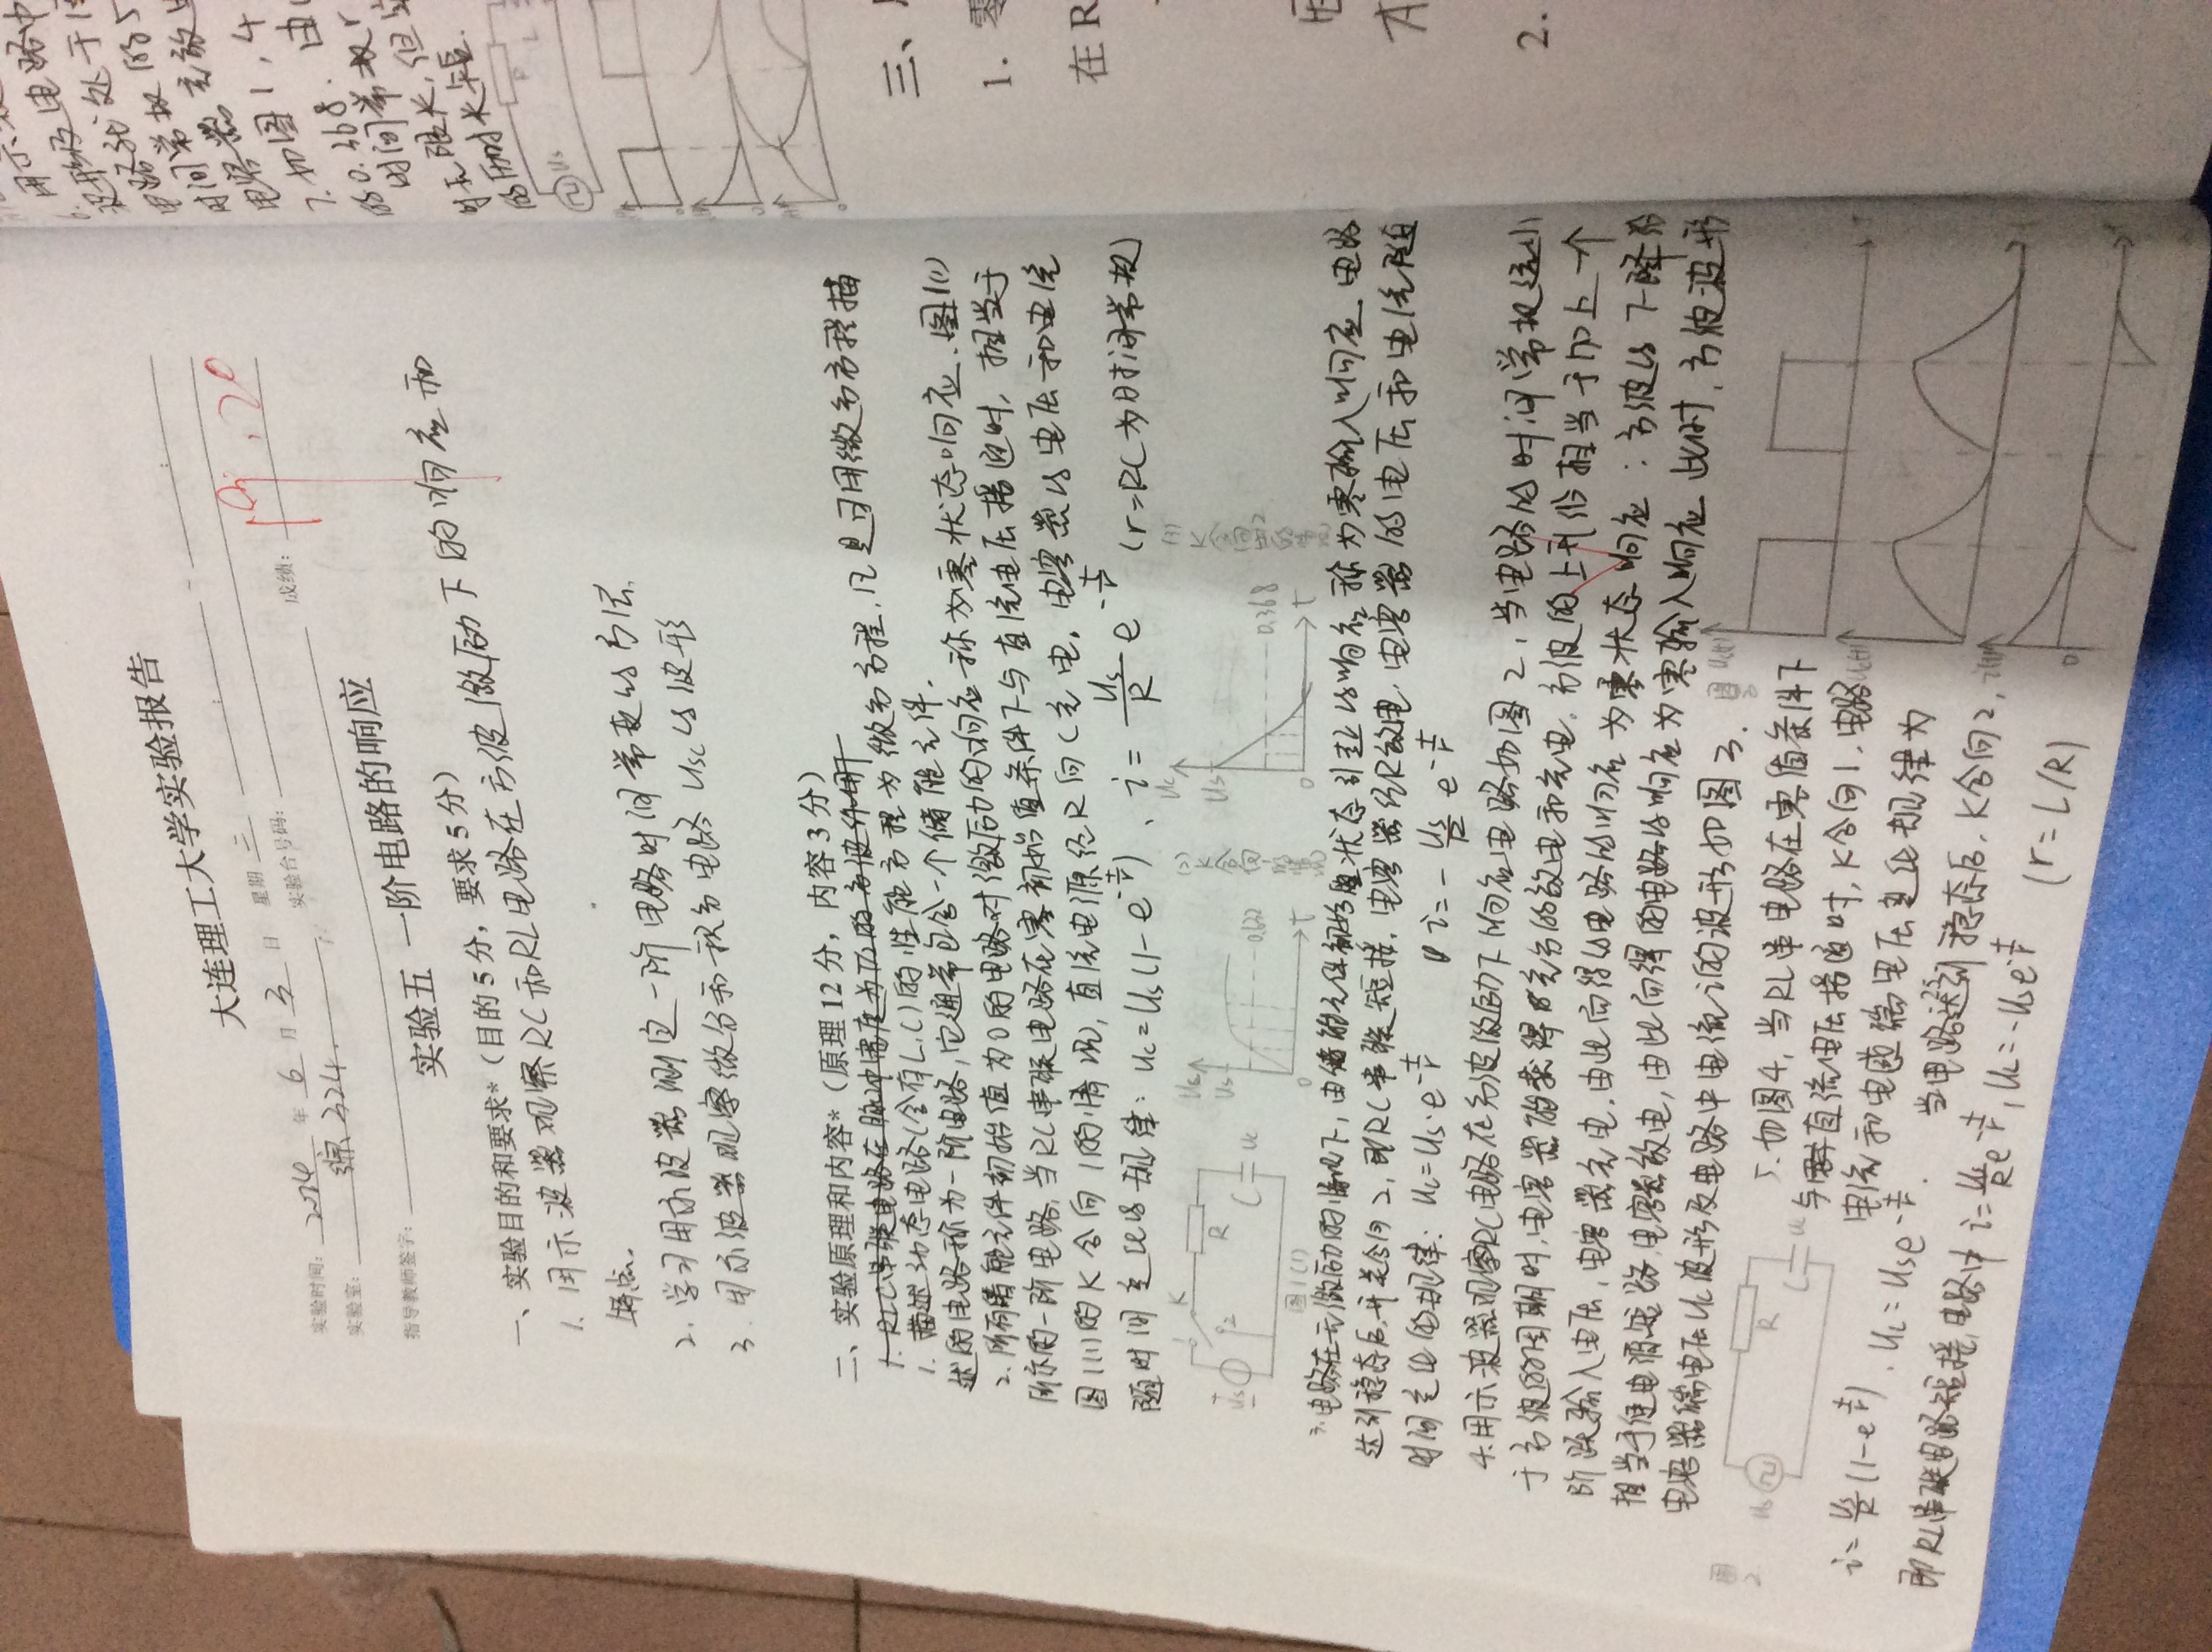 大连理工大学实验报告
实验时间: 2014 年 6 月 3 日 星期 二
实验室: 综 324. 实验台号码: 成绩:
指导教师签字:
实验五 一阶电路的响应
一、实验目的和要求*（目的 5 分，要求 5 分）
1. 用示波器观察RC和RL电路在方波激励下的响应和
特点.
2. 学习用示波器测定一阶电路时间常数的方法.
3. 用示波器观察微分和积分电路 Usc的波形
二、实验原理和内容*（原理 12 分，内容 3 分）
1. RLC串联电路在脉冲宽度为T/2的方波作用
1. 描述动态电路(含有L,C)的性能方程为微分方程,凡是可用微分方程描
述的电路称为一阶电路,它通常包含一个储能元件.
2. 所有储能元件初始值为0的电路对激励的响应称为零状态响应.图1(1)
所示的一阶电路,当RC串联电路在零初始值条件下与直流电压接通时,相当于
图1(1)的K合向1的情况,直流电源经R向C充电.电容器的电压和电流
随时间变化的规律: uc=Us(1-e^-t/r)、i=Us/R e^-t/r (r=RC为时间常数)
1 K R 2 Us C uc
图1(1)
Us 0.632 0 t
(2)K合向1的情况
uc Us 0.368 0 t
(3)K合向2的情况
3.电路在无激励的情况下,由储能元件初始状态引起的响应称为零输入响应.电路
达到稳态后,开关合向2,即RC串联短接.电容器经R放电.电容器的电压和电流随
时间变化的规律: uc=Us·e^-t/r i=-Us/R e^-t/r
4.用示波器观察RC电路在方波激励下响应电路如图2,当电路的时间常数远小
于方波的周期时,电容器能获得充分的放电和充电.方波的上升沿相当于加上一个
阶跃输入电压,电容器充电.由此而得的电路的响应为零状态响应;方波的下降沿
相当于使电源短路,电容器放电,由此而得的电路的响应为零输入响应 此时,方波波形
电容器端电压Uc波形及电路中电流i的波形如图3.
图2 Us R C uc
图3 Us(t)
5.如图4,当RL串电路在零值条件下
与直流电压接通时,K合向1,电路
电流和电感端电压变化规律为
i=Us/R(1-e^-t/r)、UL=Use^-t/r. 当电路达到稳态后,K合向2,
即RL串联电路短接,电路中 i=Us/R e^-t/r, UL=-Use^-t/r (r=L/R)
uc(t)
0
波形及电路中
电路就处于
时间常数的5
电容器充放电
7.如图1,4
的0.368.由
时间常数r
时无限长,但
的历时长短.
R L
Us
三、
1. 零
在 R
2.